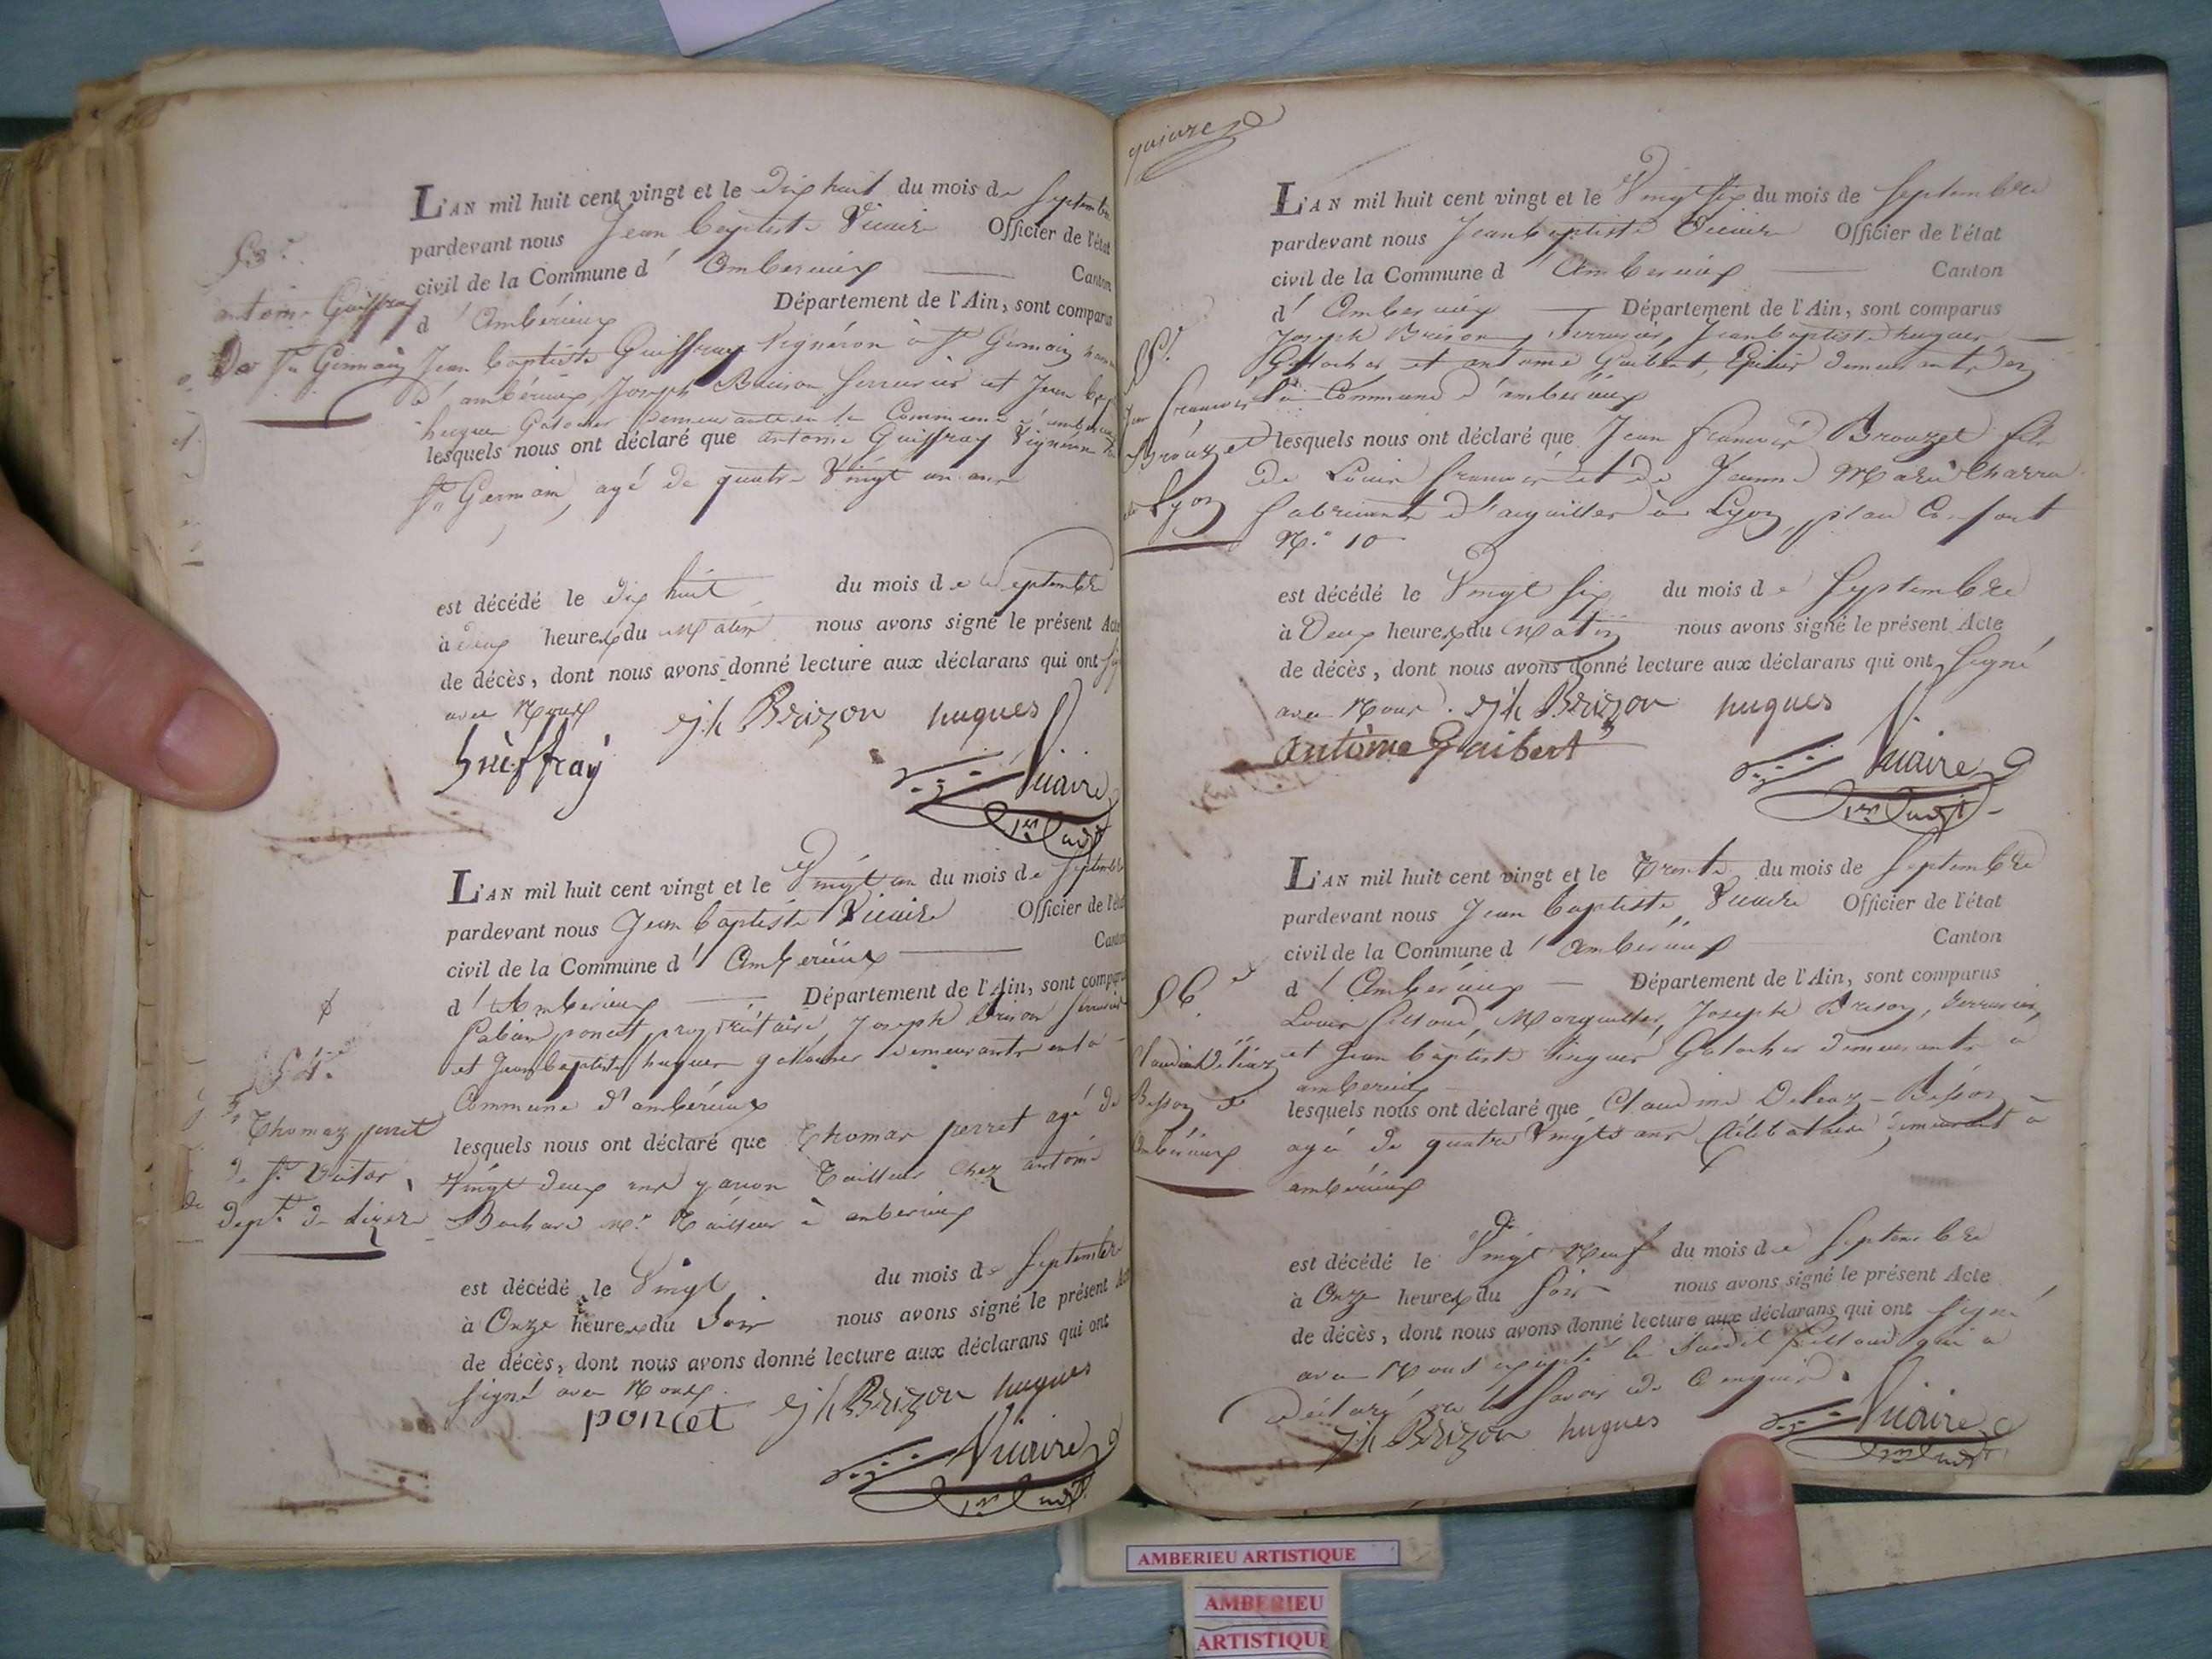 53.e
antoine Guiffray
De St Germain
L'AN mil huit cent vingt et le dix huit du mois de Septembre
pardevant nous Jean baptiste Vicaire Officier de l'état
civil de la Commune d'Amberieux Canton
d'Ambérieux Département de l'Ain, sont comparus
Jean baptiste Guiffray Vignéron à St Germain
d'ambérieux, Joseph Brison Serrurier et Jean bap
hugues Galocher demeurants en la Commune d'amberieux
lesquels nous ont déclaré que antoine Guiffray Vigneron
St Germain, agé de quatre Vingt un ans
est décédé le dix huit du mois de Septembre
à deux heures du Matin nous avons signé le présent Acte
de décès, dont nous avons donné lecture aux déclarans qui ont
avec Nous
jh Brizon hugues
Guiffray
Vicaire
54.e
Thomas perret
de St Victor
dept. de Lizere
L'AN mil huit cent vingt et le Vingt un du mois de Septembre
pardevant nous Jean baptiste Vicaire Officier de l'état
civil de la Commune d'Amberieux Canton
d'Amberieux Département de l'Ain, sont comparus
Fabien poncet propriétaire, Joseph Brison Serrurier
et Jean baptiste hugues galocher demeurants en la
Commune d'ambérieux
lesquels nous ont déclaré que Thomas perret agé de
Vingt deux ans garcon Tailleur chez antoine
Bochard me. Tailleur à amberieux
est décédé le Vingt du mois de Septembre
à Onze heures du Soir nous avons signé le présent Acte
de décès, dont nous avons donné lecture aux déclarans qui ont
signé avec Nous.
poncet jh Brizon hugues
Vicaire
55.e
Jean francois
Brouzet
de Lyon
L'AN mil huit cent vingt et le Vingt Six du mois de Septembre
pardevant nous Jean baptiste Vicaire Officier de l'état
civil de la Commune d'Amberieux Canton
d'Amberieux Département de l'Ain, sont comparus
Joseph Brison, Serrurier, Jean baptiste hugues
Galocher et antoine Guibert, Epicier demeurants en
la Commune d'ambérieux
lesquels nous ont déclaré que Jean francois Brouzet fils
de Louis francois et de Jeanne Marie Charra
fabricants d'aiguilles à Lyon, place Confort
N.° 10
est décédé le Vingt Six du mois de Septembre
à Deux heures du Matin nous avons signé le présent Acte
de décès, dont nous avons donné lecture aux déclarans qui ont signé
avec Nous. jh Brizon hugues
antoine Guibert
Vicaire
56.e
Claudine Déléaz
Besson de
Ambérieux
L'AN mil huit cent vingt et le Trente du mois de Septembre
pardevant nous Jean baptiste Vicaire Officier de l'état
civil de la Commune d'Ambérieux Canton
d'Ambérieux Département de l'Ain, sont comparus
Louis Marguiller, Joseph Brison, Serrurier,
et Jean baptiste hugues Galocher demeurants à
amberieux
lesquels nous ont déclaré que Claudine Deleaz-Besson
agée de quatre Vingts ans Célibataire demeurant à
ambérieux
est décédé le Vingt Neuf du mois de Septembre
à Onze heures du Soir nous avons signé le présent Acte
de décès, dont nous avons donné lecture aux déclarans qui ont signé
avec Nous excepté le Susdit qui a
Déclaré ne le Savoir de ce enquis.
jh Brizon hugues Vicaire
AMBERIEU ARTISTIQUE
AMBERIEU
ARTISTIQUE